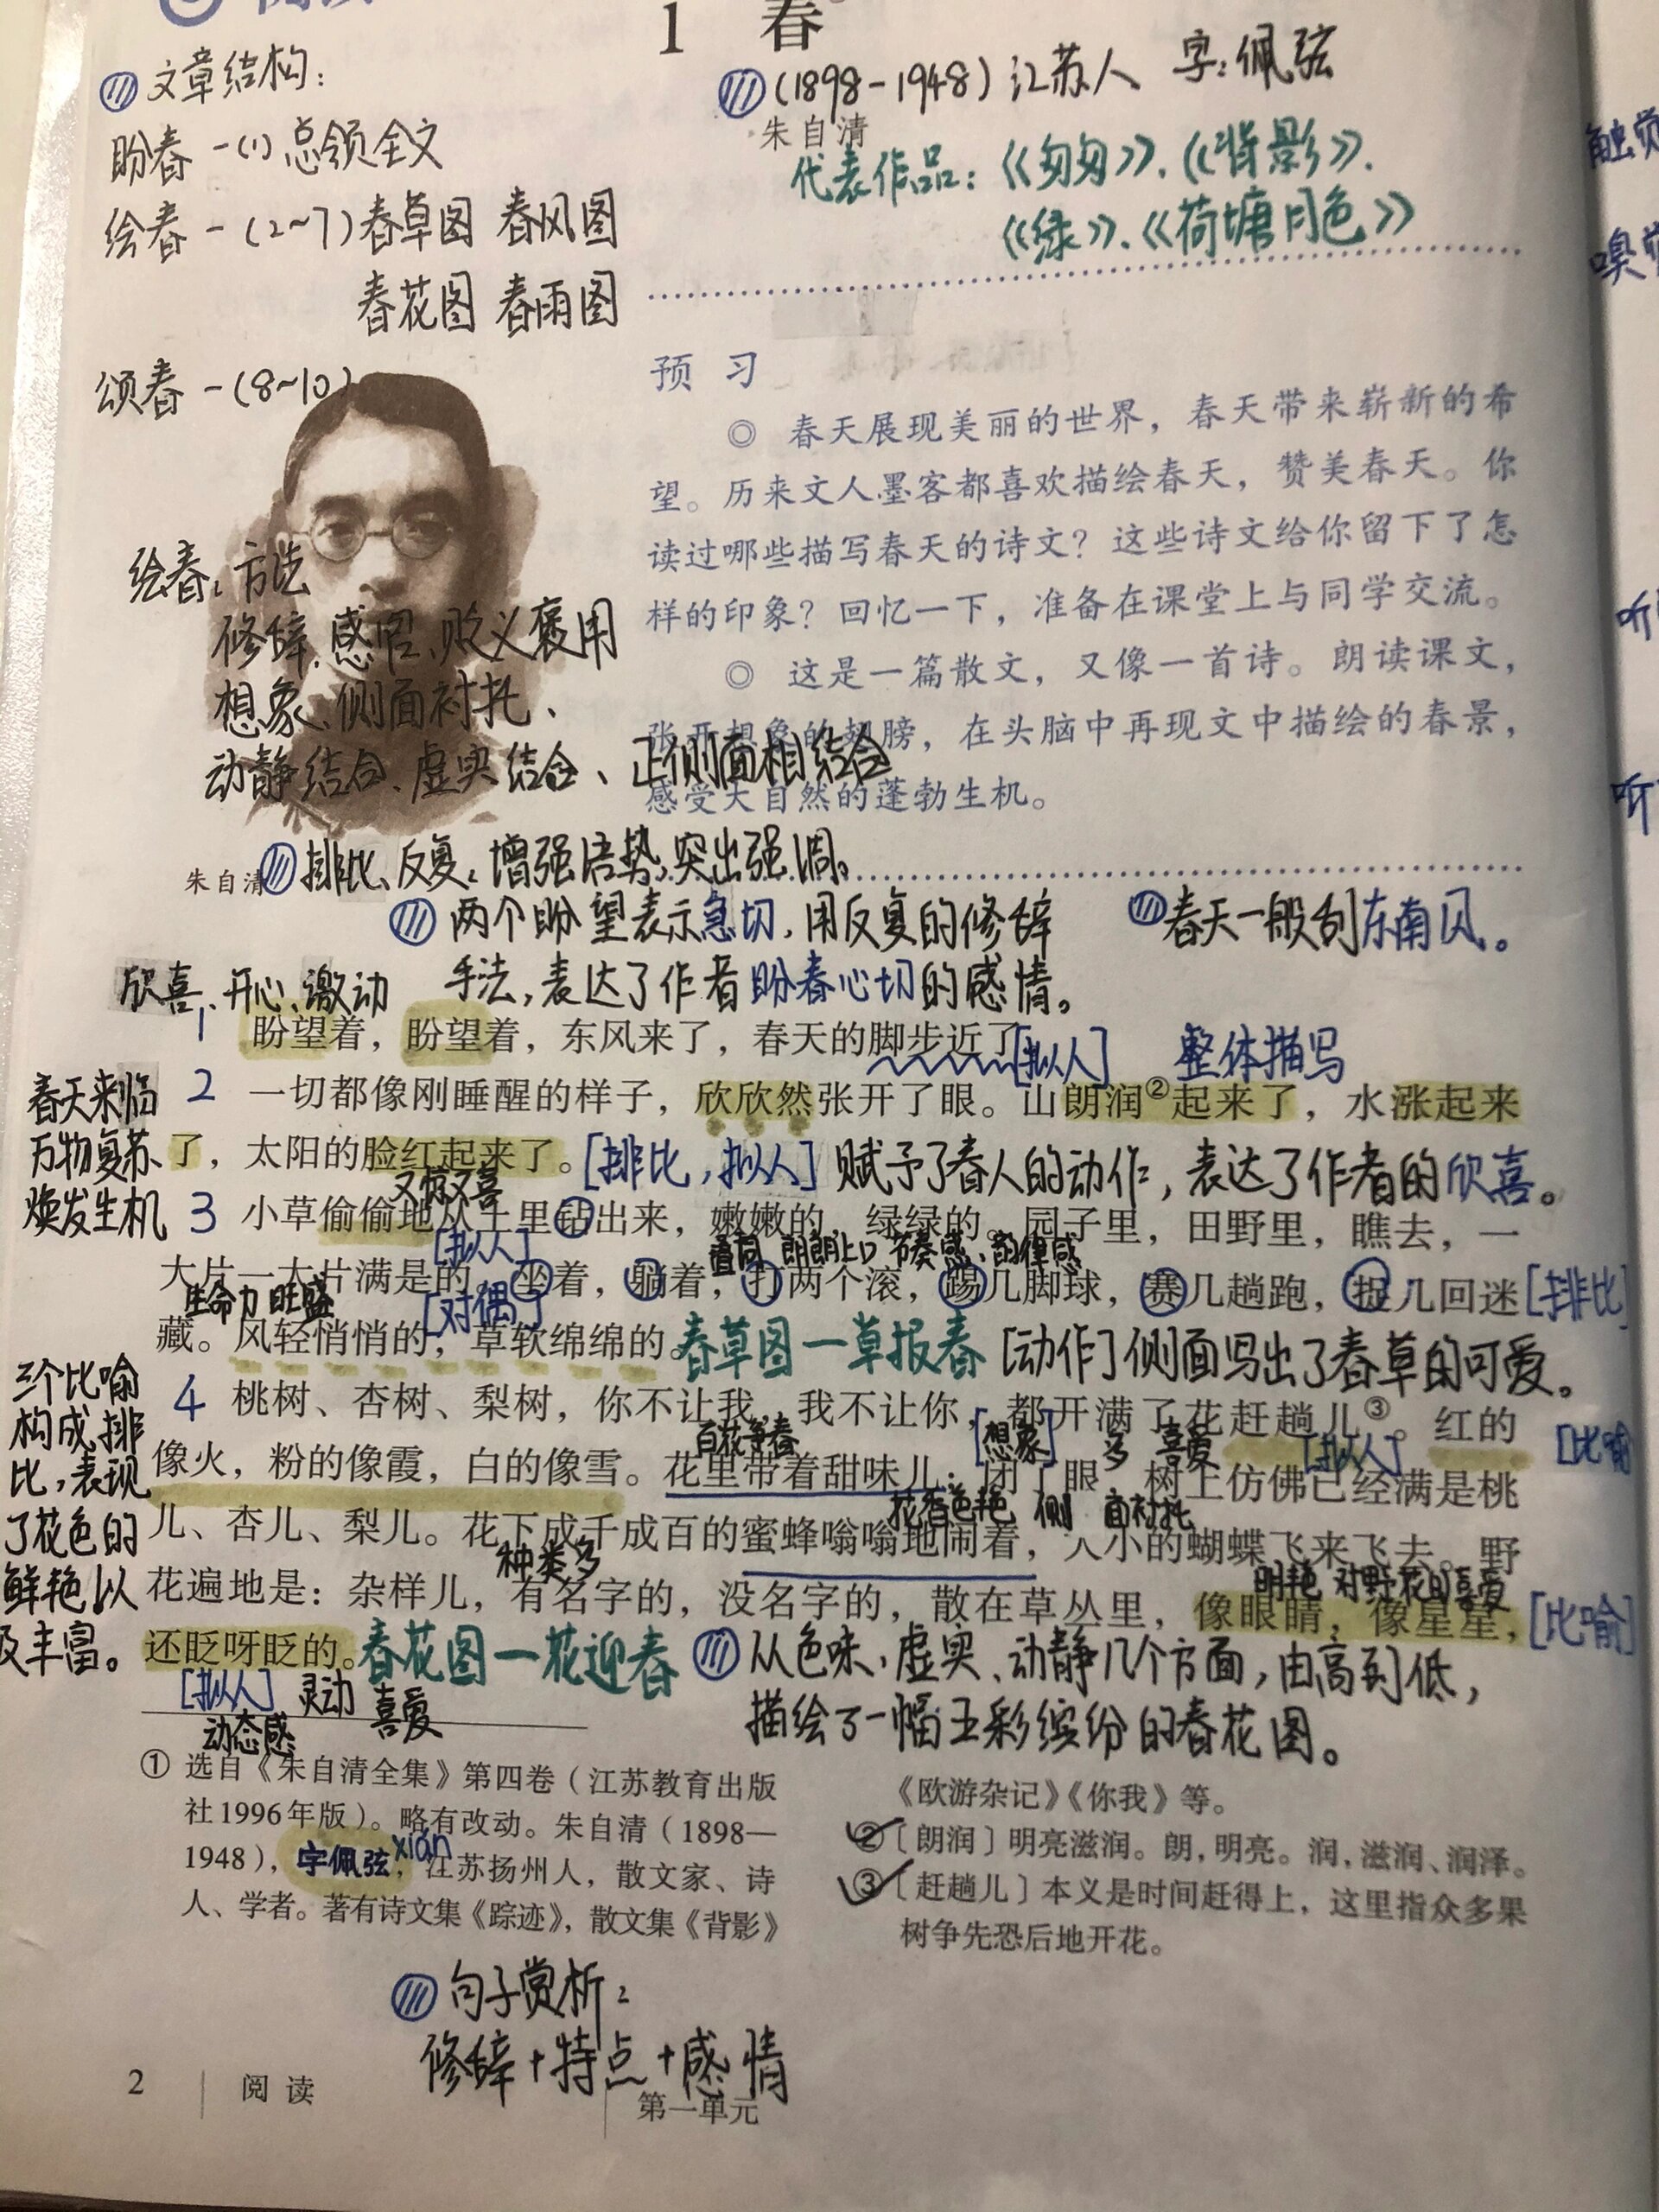 阅读
1 春
文章结构：
盼春－(1)总领全文
绘春－(2~7)春草图 春风图
春花图 春雨图
颂春－(8~10)
(1898-1948) 江苏人 字：佩弦
朱自清
代表作品：《匆匆》、《背影》、
《绿》、《荷塘月色》
触觉
嗅觉
听
听
预 习
◎ 春天展现美丽的世界，春天带来崭新的希
望。历来文人墨客都喜欢描绘春天，赞美春天。你
读过哪些描写春天的诗文？这些诗文给你留下了怎
样的印象？回忆一下，准备在课堂上与同学交流。
◎ 这是一篇散文，又像一首诗。朗读课文，
张开想象的翅膀，在头脑中再现文中描绘的春景，
感受大自然的蓬勃生机。
绘春：方法
修辞、感官、贬义褒用
想象、侧面衬托、
动静结合、虚实结合、正侧面相结合
朱自清
排比、反复：增强语势，突出强调。
两个盼望表示急切，用反复的修辞
手法，表达了作者盼春心切的感情。
春天一般刮东南风。
欣喜、开心、激动
1 盼望着，盼望着，东风来了，春天的脚步近了
[拟人] 整体描写
春天来临
万物复苏、
焕发生机
2 一切都像刚睡醒的样子，欣欣然张开了眼。山朗润②起来了，水涨起来
了，太阳的脸红起来了。[排比，拟人] 赋予了春人的动作，表达了作者的欣喜。
又惊又喜
3 小草偷偷地从土里钻出来，嫩嫩的，绿绿的。园子里，田野里，瞧去，一
[拟人] 叠词 朗朗上口 节奏感、韵律感
大片一大片满是的。坐着，躺着，打两个滚，踢几脚球，赛几趟跑，捉几回迷[排比]
生命力旺盛 [对偶]
藏。风轻悄悄的，草软绵绵的。春草图一草报春 [动作]侧面写出了春草的可爱。
三个比喻
构成排
比，表现
了花色的
鲜艳以
及丰富。
4 桃树、杏树、梨树，你不让我，我不让你，都开满了花赶趟儿③。红的
百花争春 [想象] 多 喜爱 [拟人] [比喻]
像火，粉的像霞，白的像雪。花里带着甜味儿；闭了眼，树上仿佛已经满是桃
花香色艳 侧面衬托
儿、杏儿、梨儿。花下成千成百的蜜蜂嗡嗡地闹着，大小的蝴蝶飞来飞去。野
种类多 明艳 对野花的喜爱
花遍地是：杂样儿，有名字的，没名字的，散在草丛里，像眼睛，像星星，[比喻]
还眨呀眨的。春花图一花迎春
[拟人] 灵动 喜爱
动态感
从色味、虚实、动静几个方面，由高到低，
描绘了一幅五彩缤纷的春花图。
① 选自《朱自清全集》第四卷（江苏教育出版
社1996年版）。略有改动。朱自清（1898—
1948），字佩弦，江苏扬州人，散文家、诗
xián
人、学者。著有诗文集《踪迹》，散文集《背影》
《欧游杂记》《你我》等。
②〔朗润〕明亮滋润。朗，明亮。润，滋润、润泽。
③〔赶趟儿〕本义是时间赶得上，这里指众多果
树争先恐后地开花。
句子赏析：
修辞+特点+感情
2 阅读 第一单元